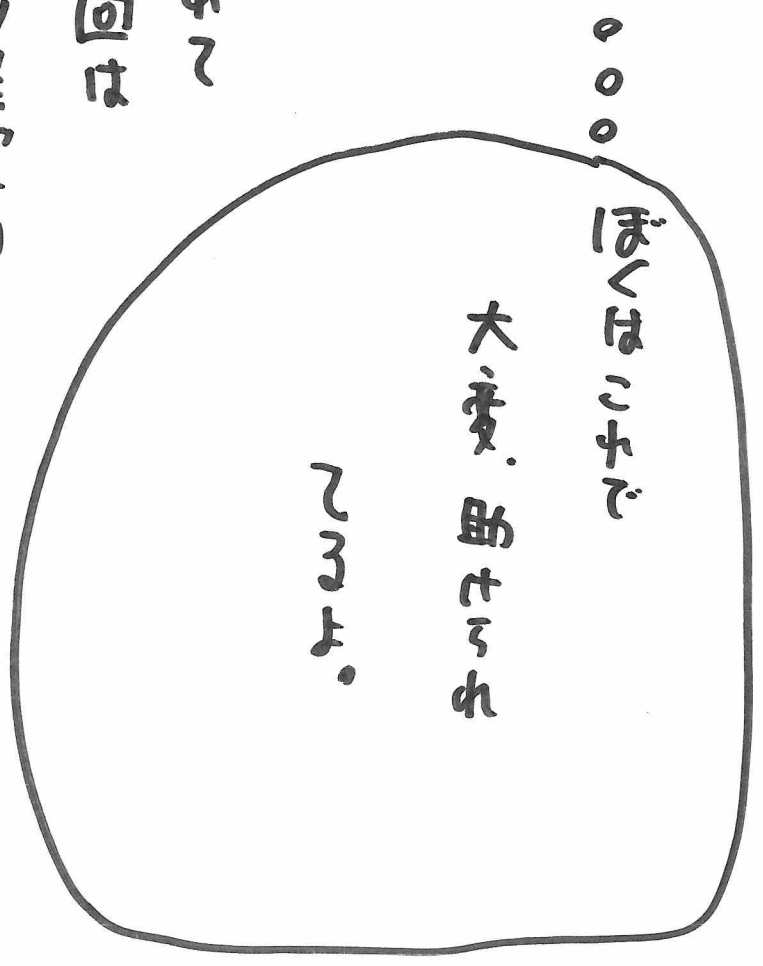 ぼくはこれで
大変.助けられ
てるよ。
れて
回は